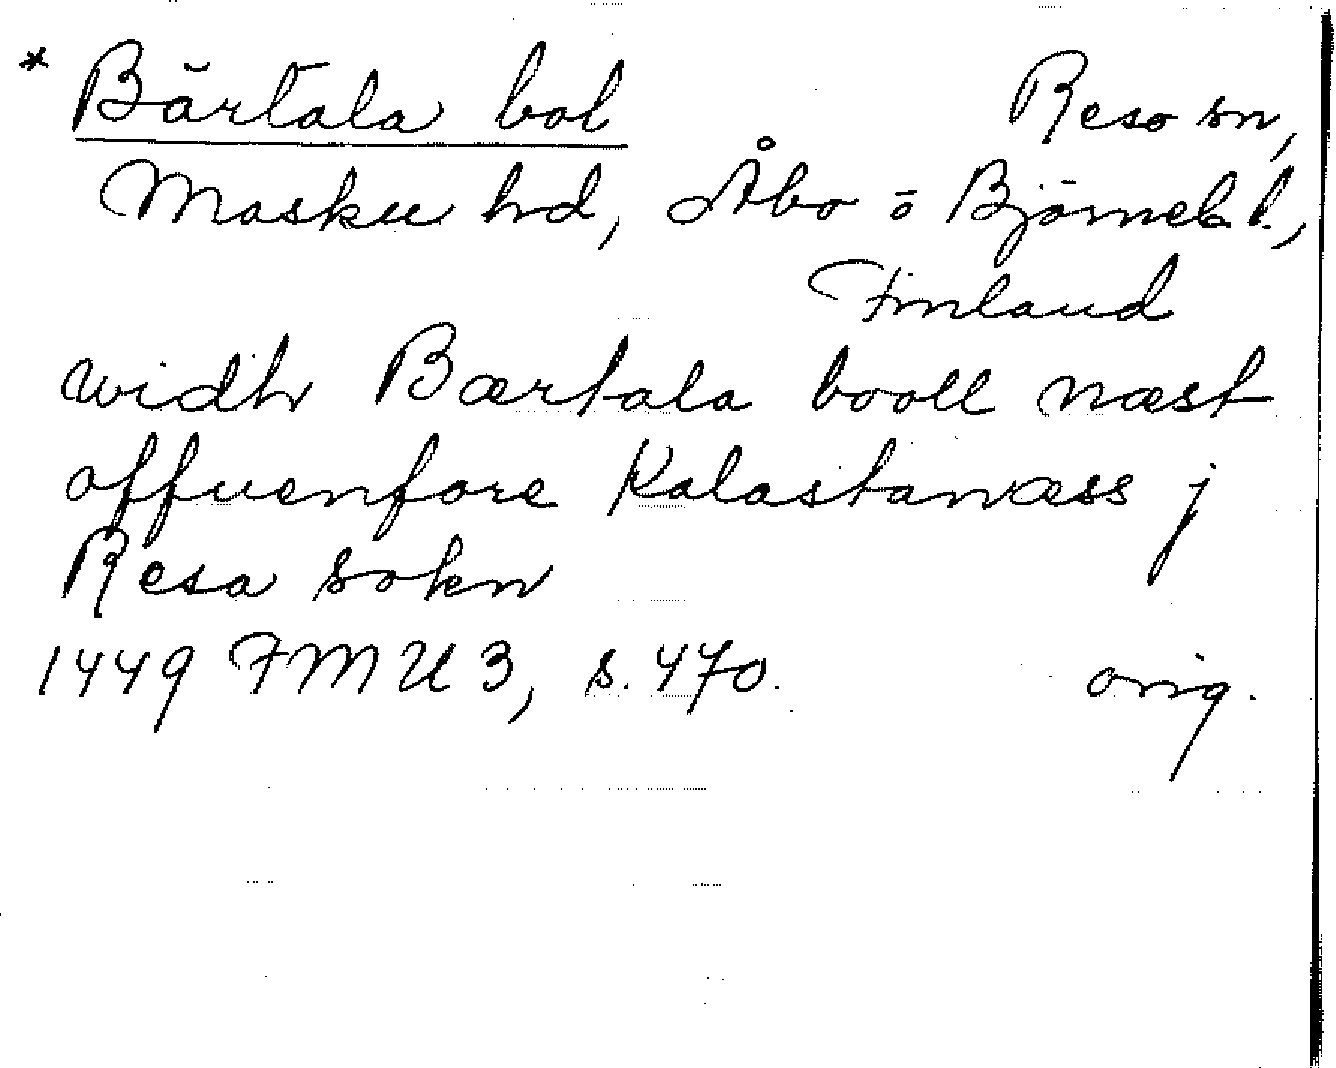 * Bärtala bol Reso sn,
Masku hd, Åbo o Björneb. l.,
Finland
widh Bærtala booll næst
offuenfore Kalastanæss j
Resa sokn
1449 FMU 3, s. 470. orig.